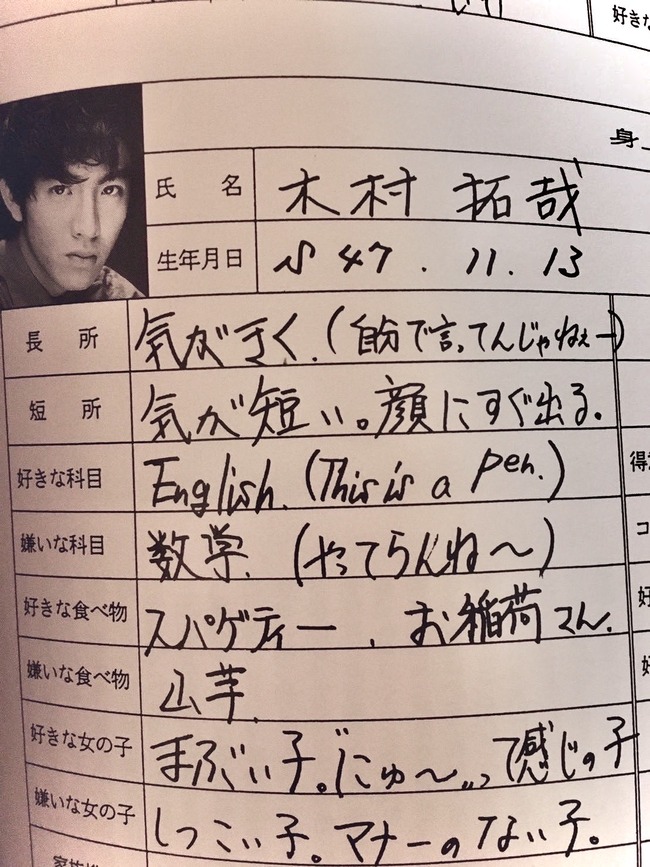 好きな
身
氏 名 木村 拓哉
生年月日 S 47. 11. 13
長 所 気がきく.(自分で言ってんじゃねぇー)
短 所 気が短い。顔にすぐ出る。
好きな科目 English. (This is a pen.)
嫌いな科目 数学. (やってらんね〜)
好きな食べ物 スパゲティー . お稲荷さん.
嫌いな食べ物 山芋.
好きな女の子 まぶい子。"にゅ〜"って感じの子
嫌いな女の子 しつこい子。マナーのない子。
得
コ
好
好